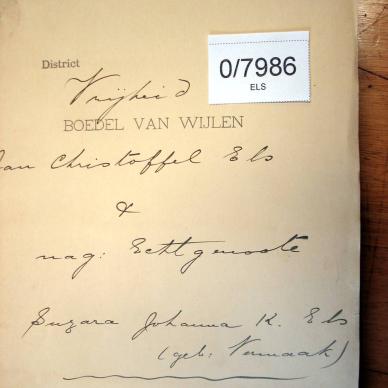 District
0/7986
ELS
Vrijheid
BOEDEL VAN WIJLEN
Jan Christoffel Els
&
nag: Echtgenoote
Suzara Johanna K. Els
(geb: Vermaak)